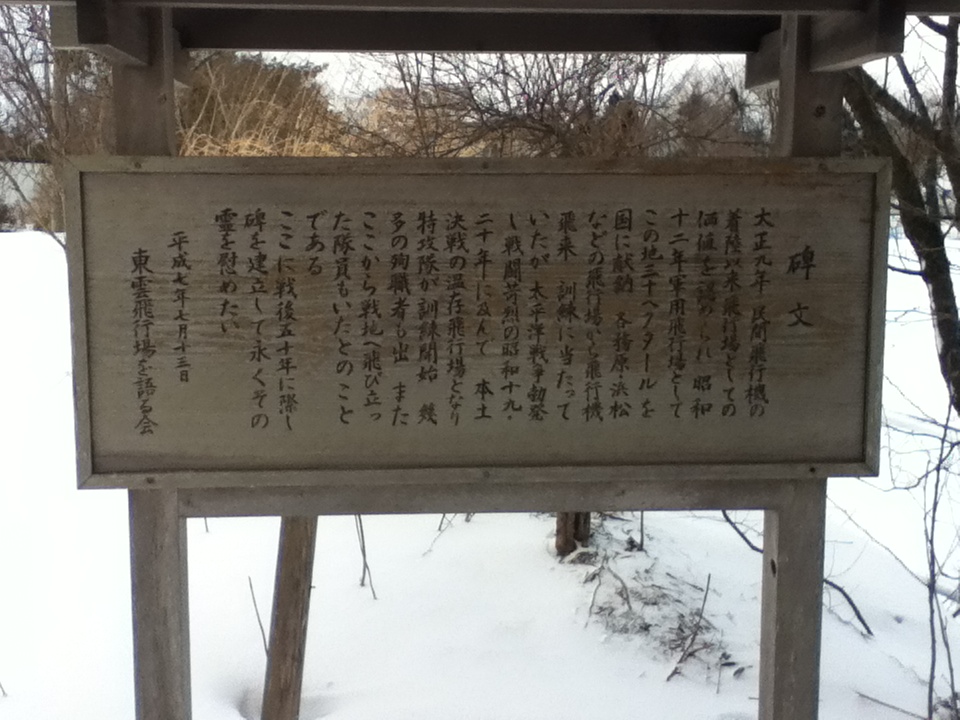 碑文
大正九年 民間飛行機の
着陸以来飛行場としての
価値を認められ 昭和
十二年軍用飛行場として
この地三十ヘクタールを
国に献納 各務原・浜松
などの飛行場から飛行機
飛来 訓練に当たって
いたが 太平洋戦争勃発
し戦闘苛烈の昭和十九・
二十年に及んで 本土
決戦の温存飛行場となり
特攻隊が訓練開始 幾
多の殉職者も出 また
ここから戦地へ飛び立っ
た隊員もいたとのこと
である
ここに戦後五十年に際し
碑を建立して永くその
霊を慰めたい
平成七年七月十三日
東雲飛行場を語る会